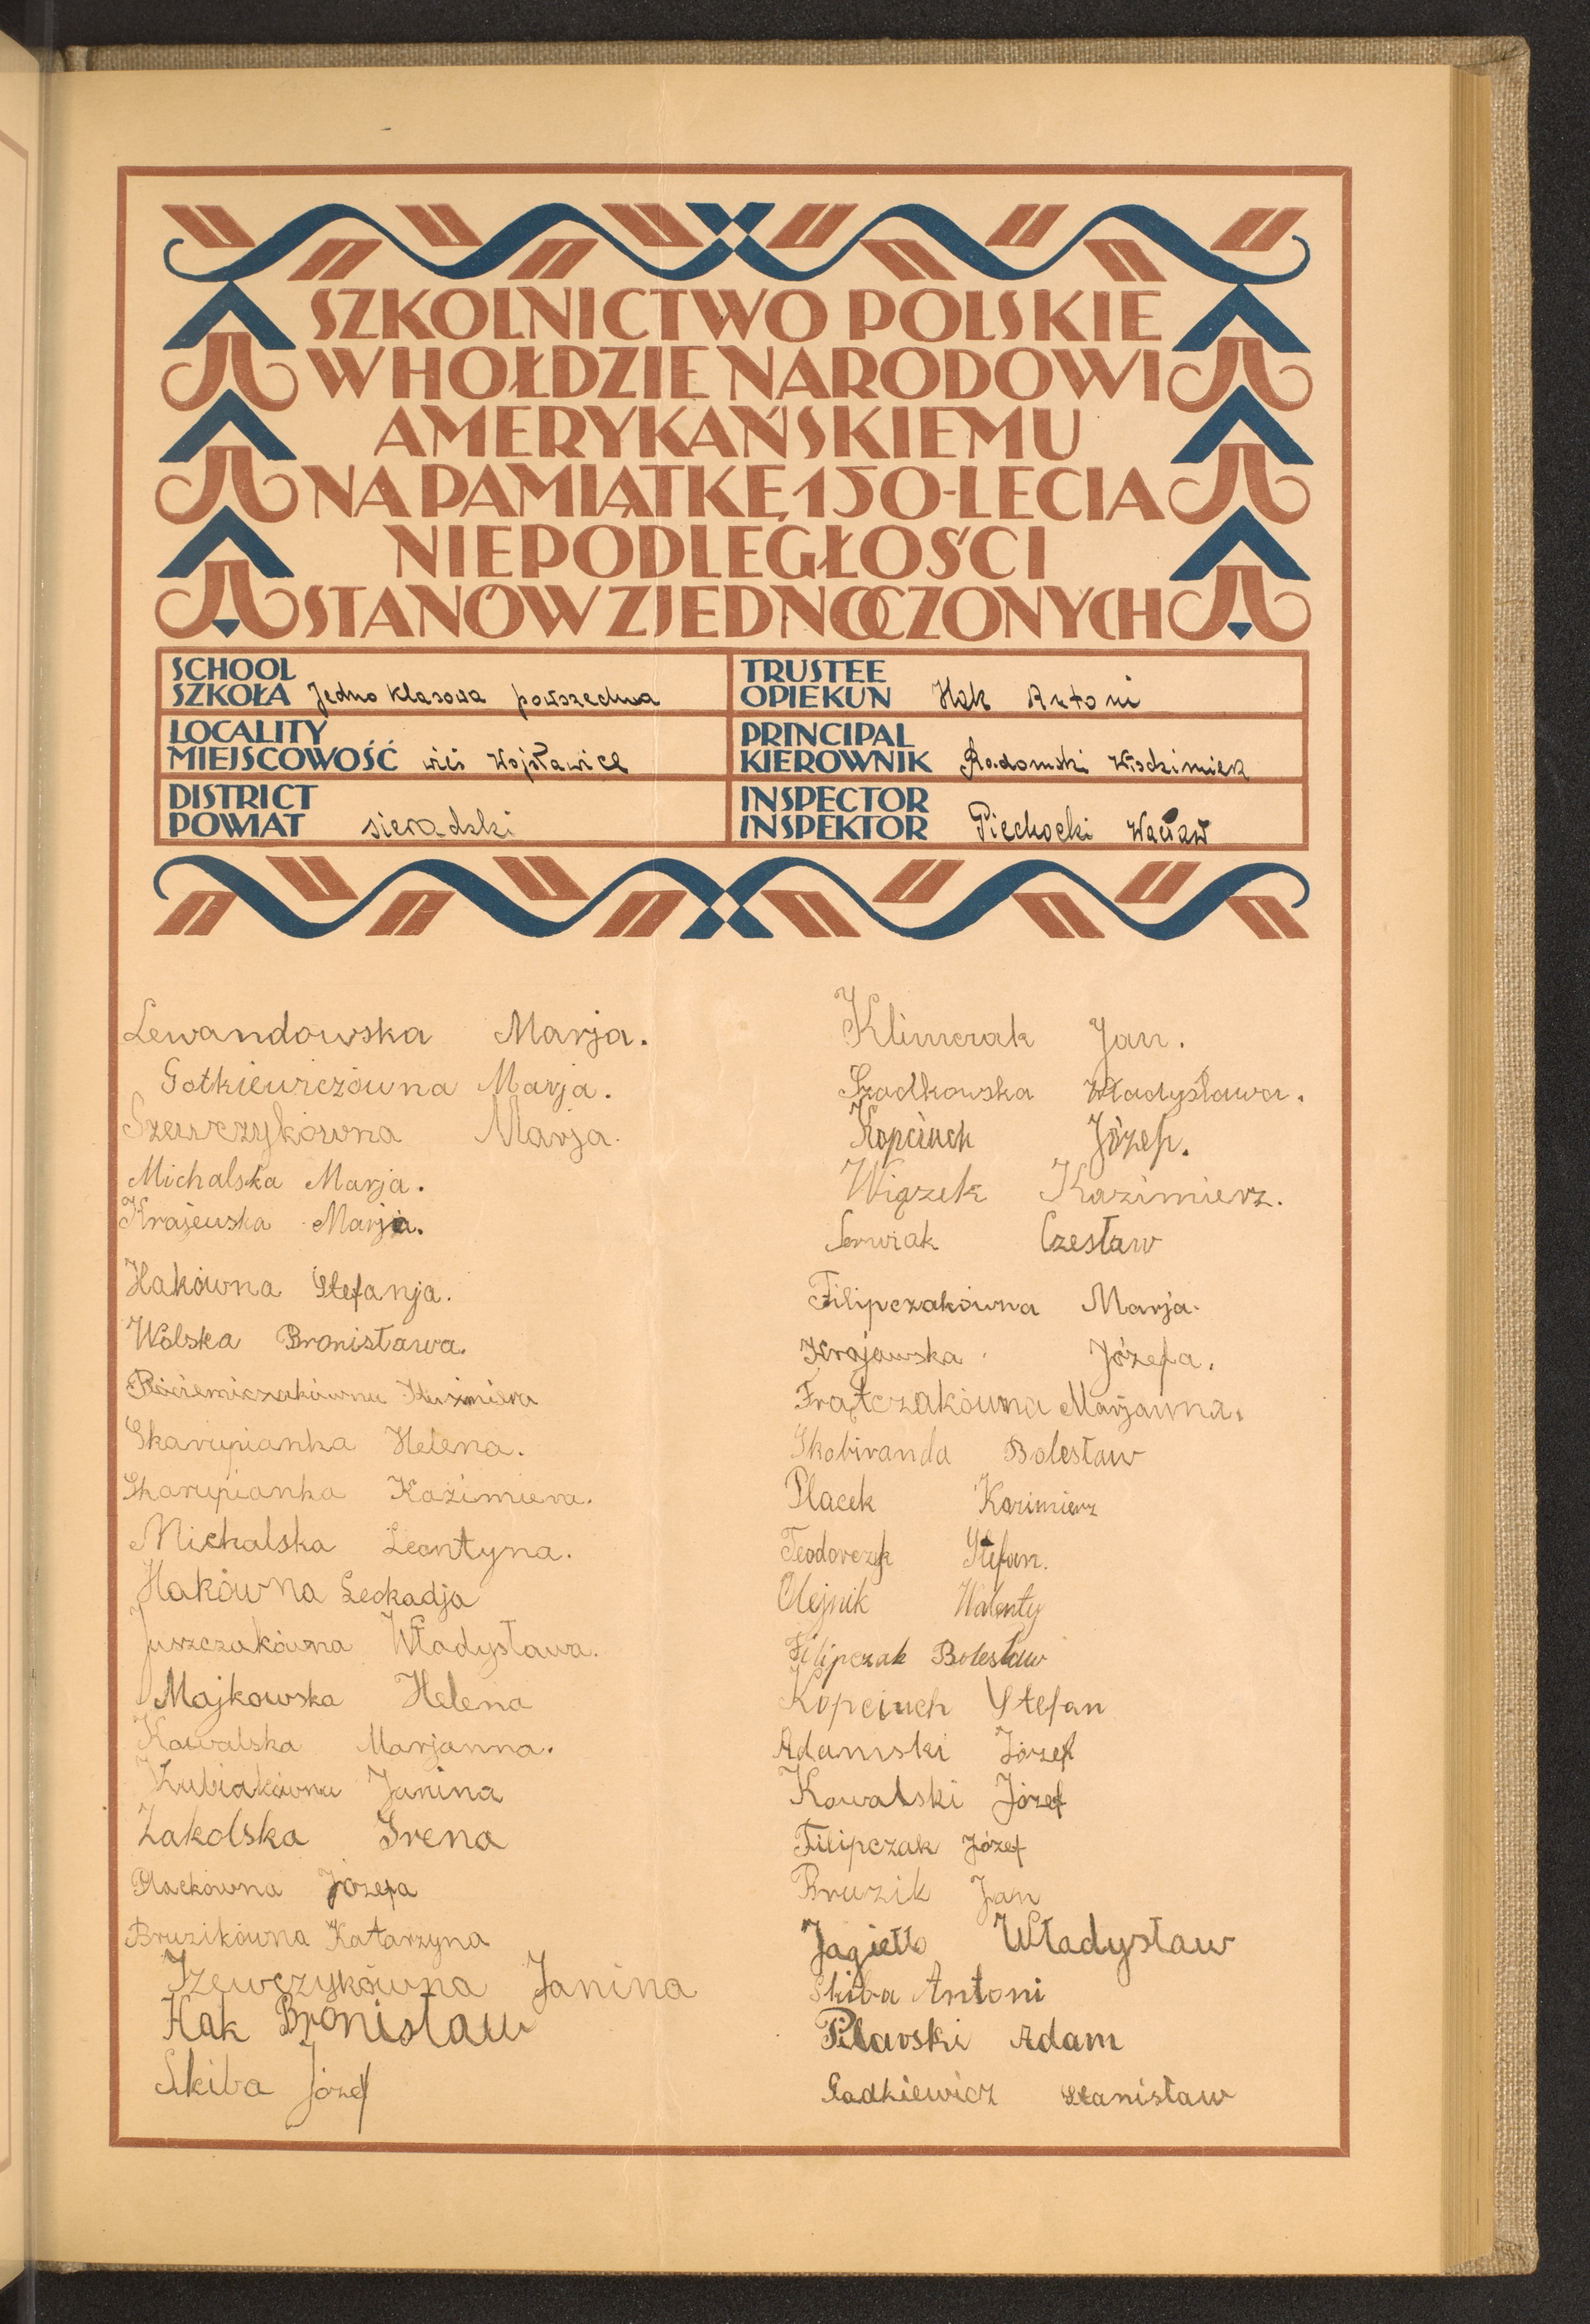 SZKOLNICTWO POLSKIE
W HOŁDZIE NARODOWI
AMERYKAŃSKIEMU
NA PAMIĄTKĘ 150-LECIA
NIEPODLEGŁOŚCI
STANÓW ZJEDNOCZONYCH
SCHOOL
SZKOŁA Jedno klasowa powszechna
LOCALITY
MIEJSCOWOŚĆ wieś Wojsławice
DISTRICT
POWIAT sieradzki
TRUSTEE
OPIEKUN Hak Antoni
PRINCIPAL
KIEROWNIK Radomski Włodzimierz
INSPECTOR
INSPEKTOR Piechocki Wacław
Lewandowska Marja.
Gotkiewiczówna Marja.
Szewczykówna Marja.
Michalska Marja.
Krajewska Marja.
Hakówna Stefanja.
Wolska Bronisława.
Płóciemiczakówna Kazimiera
Skarupianka Helena.
Skarupianka Kazimiera.
Michalska Leontyna.
Hakówna Leokadja
Juszczakówna Władysława.
Majkowska Helena
Kowalska Marjanna.
Kubiakówna Janina
Zakolska Irena
Plackówna Józefa
Bruzikówna Katarzyna
Szewczykówna Janina
Hak Bronisław
Skiba Józef
Klimczak Jan.
Szadkowska Władysława.
Kopciuch Józef.
Wiązek Kazimierz.
Serwiak Czesław
Filipczakówna Marja.
Krajawska Józefa.
Frątczakówna Marjanna.
Skobiranda Bolesław
Placek Kazimierz
Teodorczyk Stefan.
Olejnik Walenty
Filipczak Bolesław
Kopciuch Stefan
Adamski Józef
Kowalski Józef
Filipczak Józef
Bruzik Jan
Jagiełło Władysław
Skiba Antoni
Pilarski Adam
Radkiewicz Stanisław